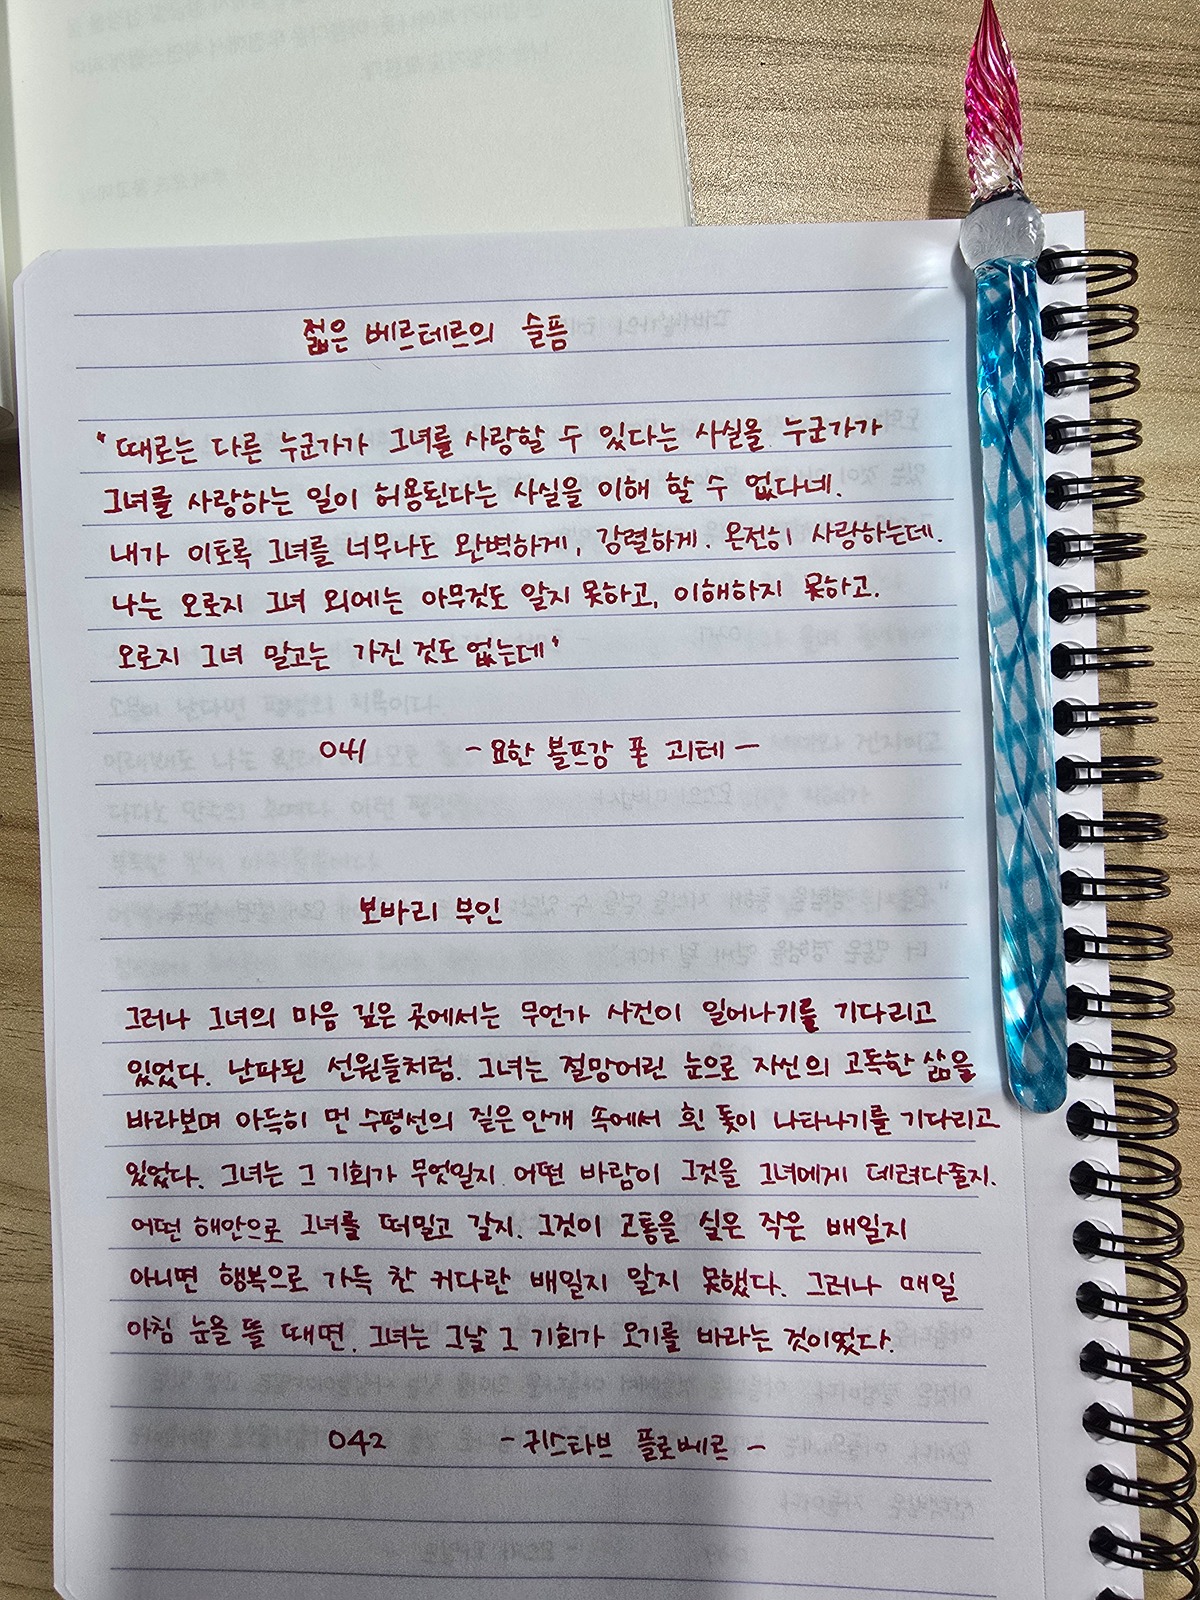 젊은 베르테르의 슬픔
"때로는 다른 누군가가 그녀를 사랑할 수 있다는 사실을. 누군가가
그녀를 사랑하는 일이 허용된다는 사실을 이해 할 수 없다네.
내가 이토록 그녀를 너무나도 완벽하게, 강렬하게. 온전히 사랑하는데.
나는 오로지 그녀 외에는 아무것도 알지 못하고, 이해하지 못하고.
오로지 그녀 말고는 가진 것도 없는데"
041 - 요한 볼프강 폰 괴테 -
보바리 부인
그러나 그녀의 마음 깊은 곳에서는 무언가 사건이 일어나기를 기다리고
있었다. 난파된 선원들처럼. 그녀는 절망어린 눈으로 자신의 고독한 삶을
바라보며 아득히 먼 수평선의 짙은 안개 속에서 흰 돛이 나타나기를 기다리고
있었다. 그녀는 그 기회가 무엇일지. 어떤 바람이 그것을 그녀에게 데려다줄지.
어떤 해안으로 그녀를 떠밀고 갈지. 그것이 고통을 실은 작은 배일지
아니면 행복으로 가득 찬 커다란 배일지 알지 못했다. 그러나 매일
아침 눈을 뜰 때면. 그녀는 그날 그 기회가 오기를 바라는 것이었다.
042 - 귀스타브 플로베르 -